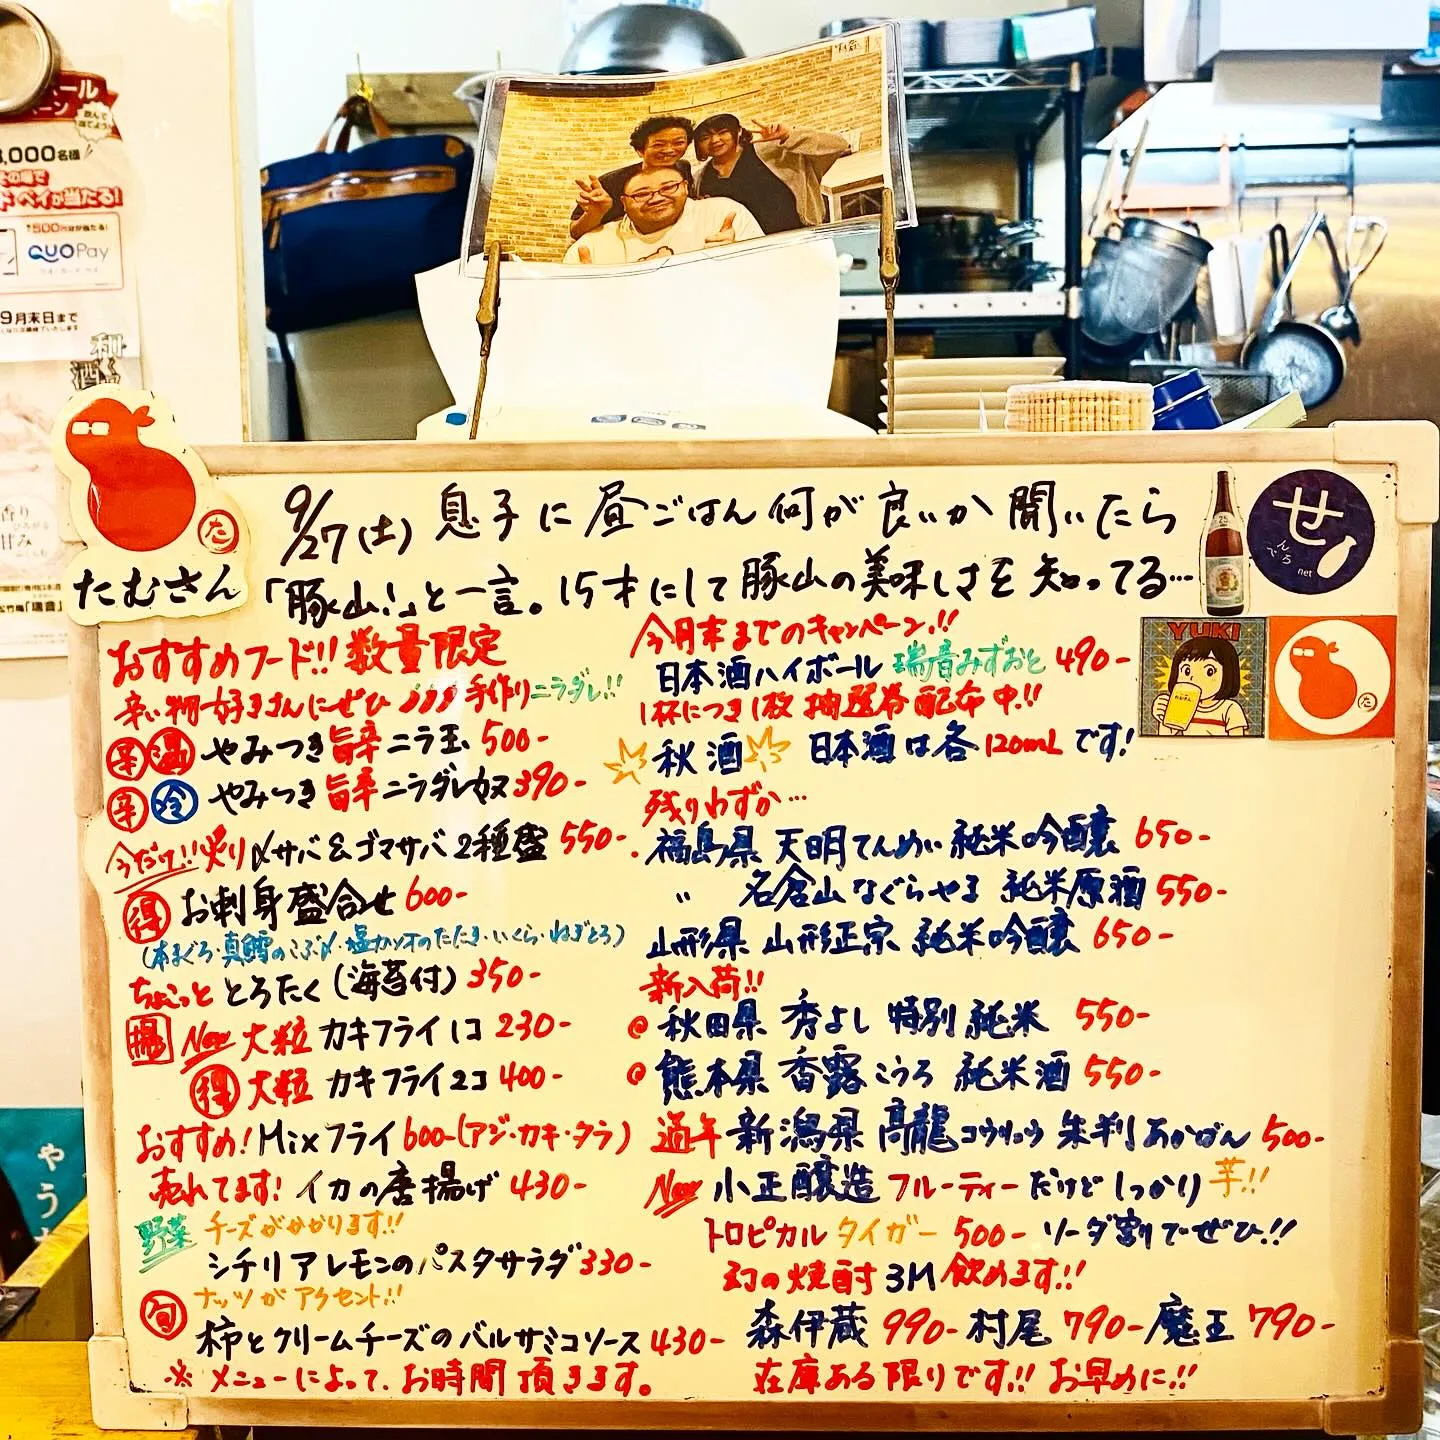 ール
ーン
3,000名様
の場で
ペイが当たる!
500円分が当たる!
QUO Pay
9月末日まで
和酒
香り
甘み
たむさん
た
せ
んべろ
net
YUKI
た
やう
9/27(土) 息子に昼ごはん何が良いか聞いたら
「豚山!」と一言。15才にして豚山の美味しさを知ってる…
おすすめフード!! 数量限定
辛い物好きさんにぜひ 手作りニラダレ!!
辛 温 やみつき旨辛ニラ玉 500-
辛 冷 やみつき旨辛ニラダレ奴 390-
今だけ!! 炙り〆サバ&ゴマサバ2種盛 550-
得 お刺身盛合せ 600-
(本まぐろ・真鯛のこぶ〆・塩カツオのたたき・いくら・ねぎとろ)
ちょこっと とろたく(海苔付) 350-
揚 New 大粒 カキフライ1コ 230-
得 大粒 カキフライ2コ 400-
おすすめ! Mixフライ 600-(アジ・カキ・タラ)
売れてます! イカの唐揚げ 430-
野菜 チーズがかかります!!
シチリアレモンのパスタサラダ 330-
ナッツがアクセント!!
旬 柿とクリームチーズのバルサミコソース 430-
※メニューによって、お時間頂きます。
今月末までのキャンペーン!!
日本酒ハイボール 瑞音みずおと 490-
1杯につき1枚 抽選券配布中!!
秋酒 日本酒は各120mLです!
残りわずか…
・福島県 天明てんめい 純米吟醸 650-
〃 名倉山なぐらやま 純米原酒 550-
山形県 山形正宗 純米吟醸 650-
新入荷!!
秋田県 秀よし 特別純米 550-
熊本県 香露こうろ 純米酒 550-
通年 新潟県 高龍コウリュウ 朱判あかばん 500-
New 小正醸造 フルーティーだけどしっかり芋!!
トロピカルタイガー 500- ソーダ割でぜひ!!
幻の焼酎3M飲めます!!
森伊蔵 990- 村尾 790- 魔王 790-
在庫ある限りです!! お早めに!!